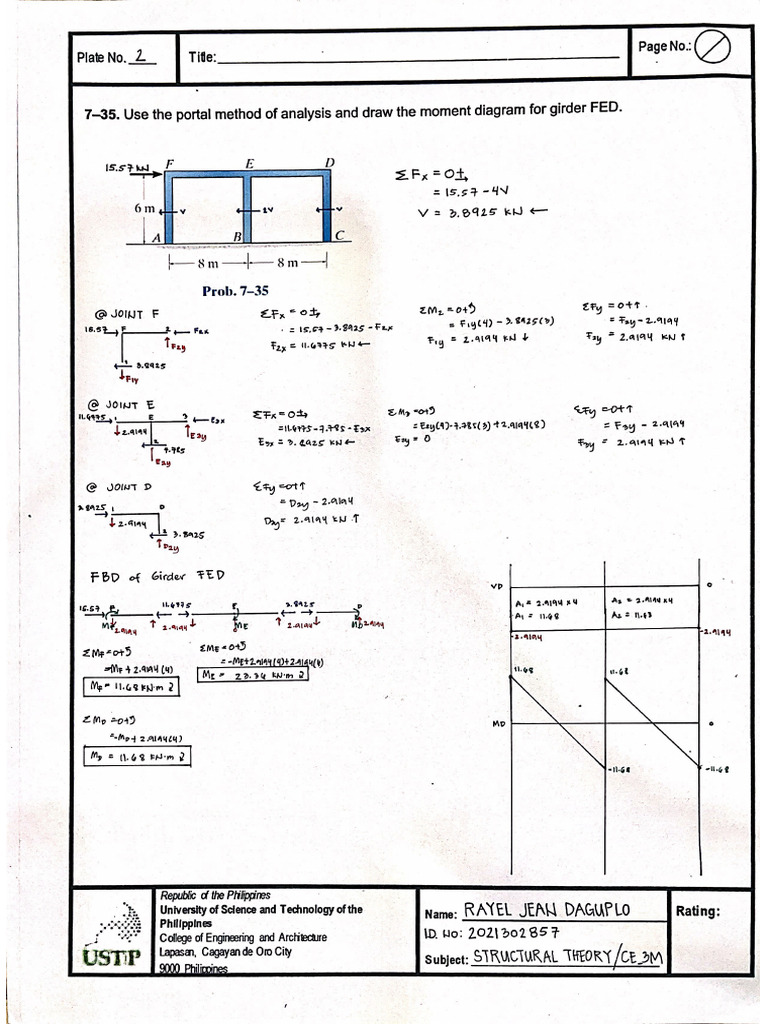 Plate No. 2
Title:
Page No.:
7–35. Use the portal method of analysis and draw the moment diagram for girder FED.
15.57 kN
F
E
D
6 m
V
2V
V
A
B
C
8 m
8 m
Prob. 7–35
ΣFx = 0 ±→
= 15.57 - 4V
V = 3.8925 kN ←
@ JOINT F
15.57
F
2
F2x
F2y
1
3.8925
F1y
ΣFx = 0 ±→
= 15.57 - 3.8925 - F2x
F2x = 11.6775 kN ←
ΣM2 = 0 +↺
= F1y(4) - 3.8925(3)
F1y = 2.9194 kN ↓
ΣFy = 0 +↑
= F2y - 2.9194
F2y = 2.9194 kN ↑
@ JOINT E
11.6775
1
E
3
E3x
2.9194
E3y
2
7.785
E2y
ΣFx = 0 ±→
= 11.6775 - 7.785 - E3x
E3x = 3.8925 kN ←
ΣM3 = 0 +↺
= E2y(4) - 7.785(3) + 2.9194(8)
E2y = 0
ΣFy = 0 +↑
= F3y - 2.9194
F3y = 2.9194 kN ↑
@ JOINT D
3.8925
1
D
2.9194
2
3.8925
D2y
ΣFy = 0 +↑
= D2y - 2.9194
D2y = 2.9194 kN ↑
FBD of Girder FED
15.57
F
11.6775
E
3.8925
D
MF
2.9194
2.9194
ME
0
2.9194
MD
2.9194
ΣMF = 0 +↺
= -MF + 2.9194 (4)
MF = 11.68 kN·m
ΣME = 0 +↺
= -ME + 2.9194(4) + 2.9194(4)
ME = 23.36 kN·m
ΣMD = 0 +↺
= -MD + 2.9194(4)
MD = 11.68 kN·m
VD
0
A1 = 2.9194 x 4
A1 = 11.68
A2 = 2.9194 x 4
A2 = 11.63
-2.9194
-2.9194
11.68
11.68
MD
0
-11.68
-11.68
USTP
Republic of the Philippines
University of Science and Technology of the
Philippines
College of Engineering and Architecture
Lapasan, Cagayan de Oro City
9000 Philippines
Name: RAYEL JEAN DAGUPLO
ID. No: 2021302857
Subject: STRUCTURAL THEORY/CE_3M
Rating: